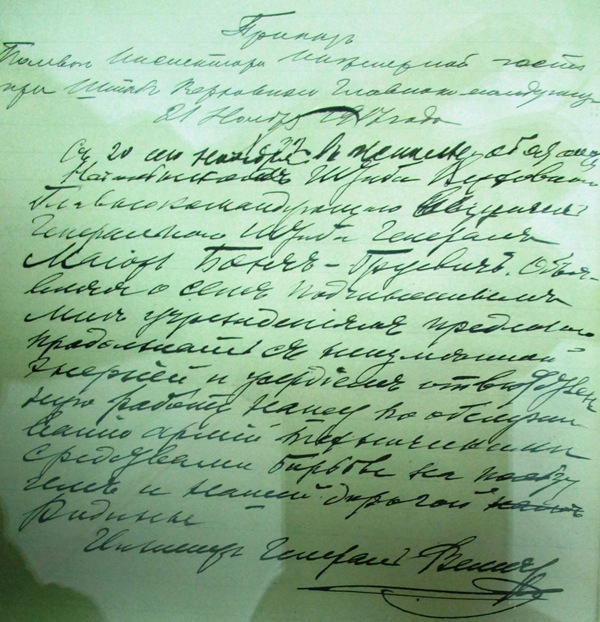 Приказ
Полевого Инспектора Инженерной части
при Штабе Верховного Главнокомандующаго
21 Ноября 1917 года
№ 22
С 20 сего ноября в исполнение обязан
Начальника Штаба Верховного
Главнокомандующаго вступил
Генерального Штаба Генерал
Маиор Бонч-Бруевич. Объя-
вляя о сем подчиненным
мне учреждениям предлагаю
продолжать с неизменной
энергией и усердием ответствен
ную работу нашу по обслужи
ванию армий техническими
средствами борьбы на пользу
ея и нашей дорогой
Родины
Инженер Генерал